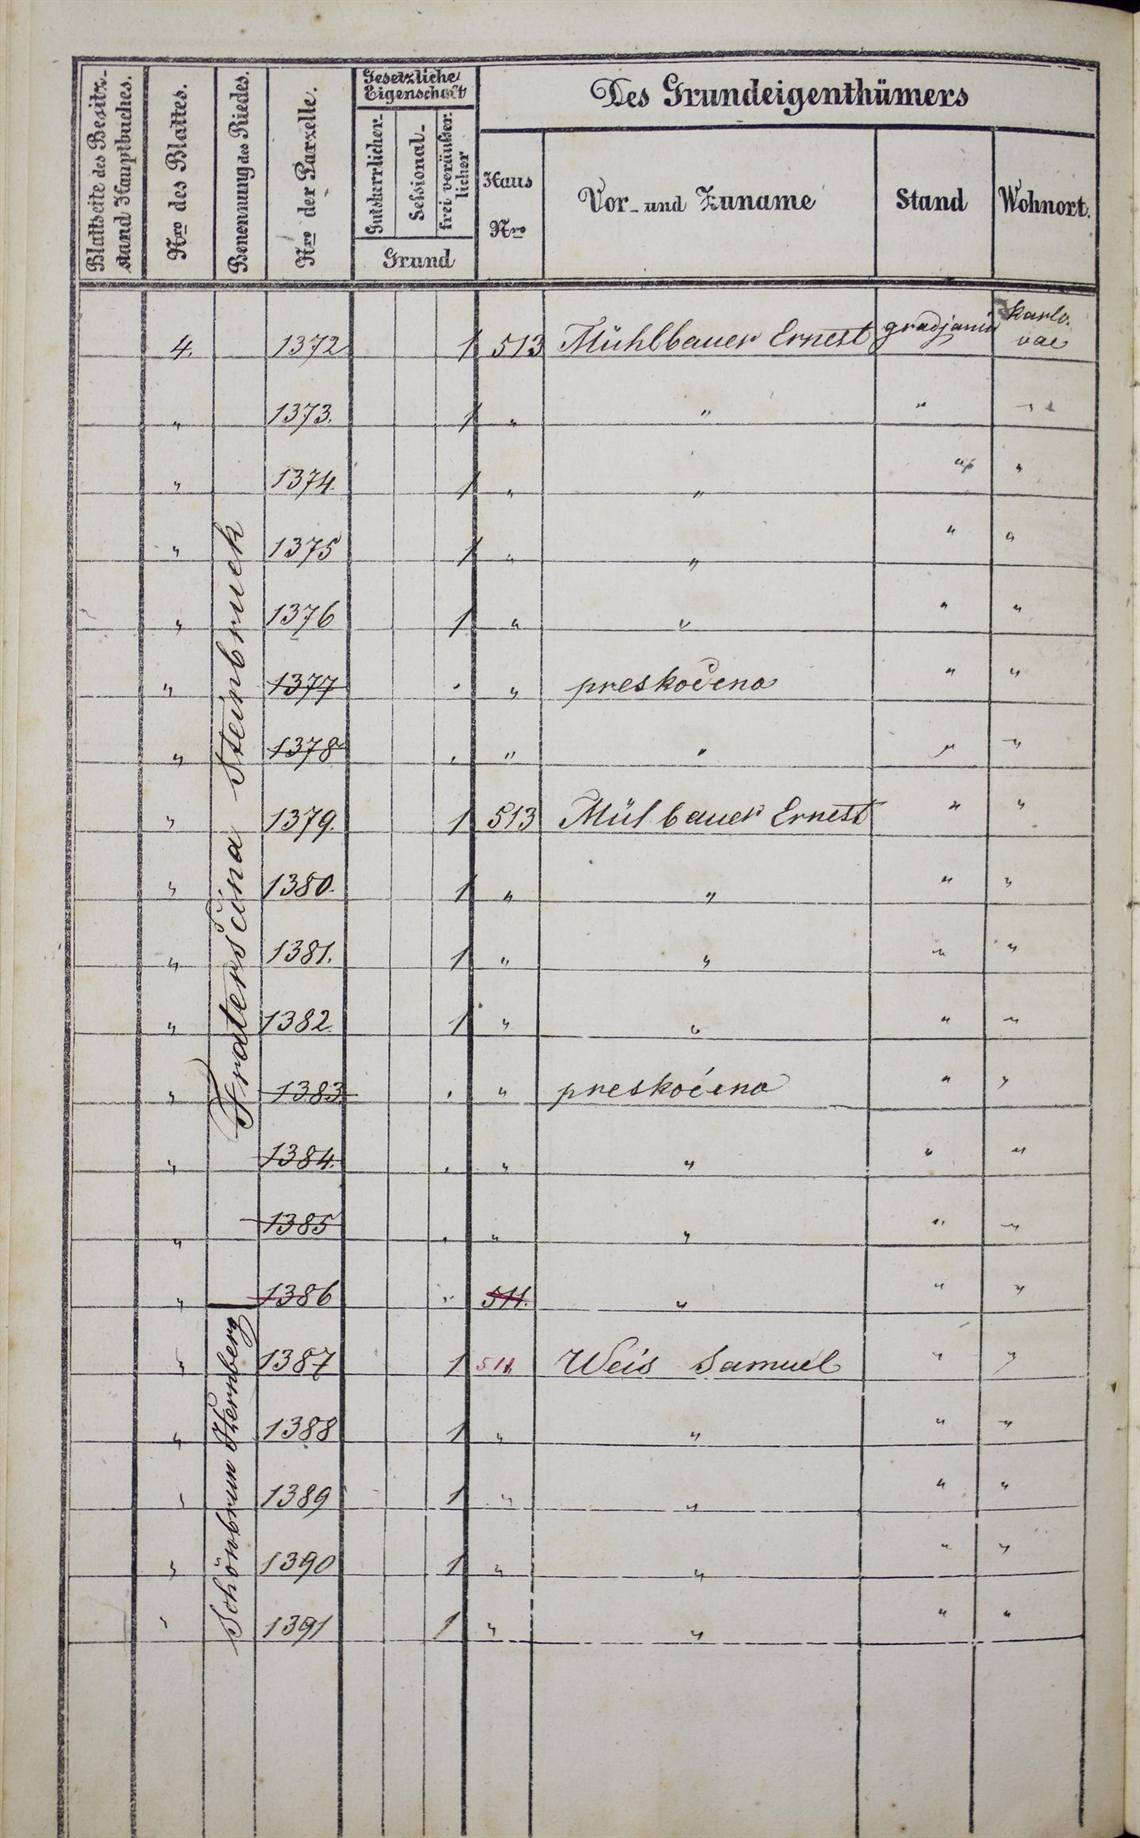 Blattseite des Besitz-
stand Hauptbuches.
Nro des Blattes.
Benennung des Riedes.
Nro der Parzelle.
Gesetzliche
Eigenschaft
Gutsherrlicher
Sessional-
frei veräußer
licher
Grund
Des Grundeigenthümers
Haus
Nro
Vor- und Zuname
Stand
Wohnort.
Fraterščina Steinbruck
Schönbrun Sternberg
4. 1372 1 513 Mühlbauer Ernest gradjanin Karlo.
vac
„ 1373. 1 „ „ „ „
„ 1374. 1 „ „ „ „
„ 1375 1 „ „ „ „
„ 1376 1 „ „ „ „
„ 1377 . „ preskočeno „ „
„ 1378 . „ „ „ „
„ 1379. 1 513 Mülbauer Ernest „ „
„ 1380. 1 „ „ „ „
„ 1381. 1 „ „ „ „
„ 1382. 1 „ „ „ „
„ 1383. . „ preskočeno „ „
„ 1384. . „ „ „ „
„ 1385 . „ „ „ „
„ 1386 „ 511. „ „ „
„ 1387 1 511. Weis Samuel „ „
„ 1388 1 „ „ „ „
„ 1389 1 „ „ „ „
„ 1390 1 „ „ „ „
„ 1391 1 „ „ „ „